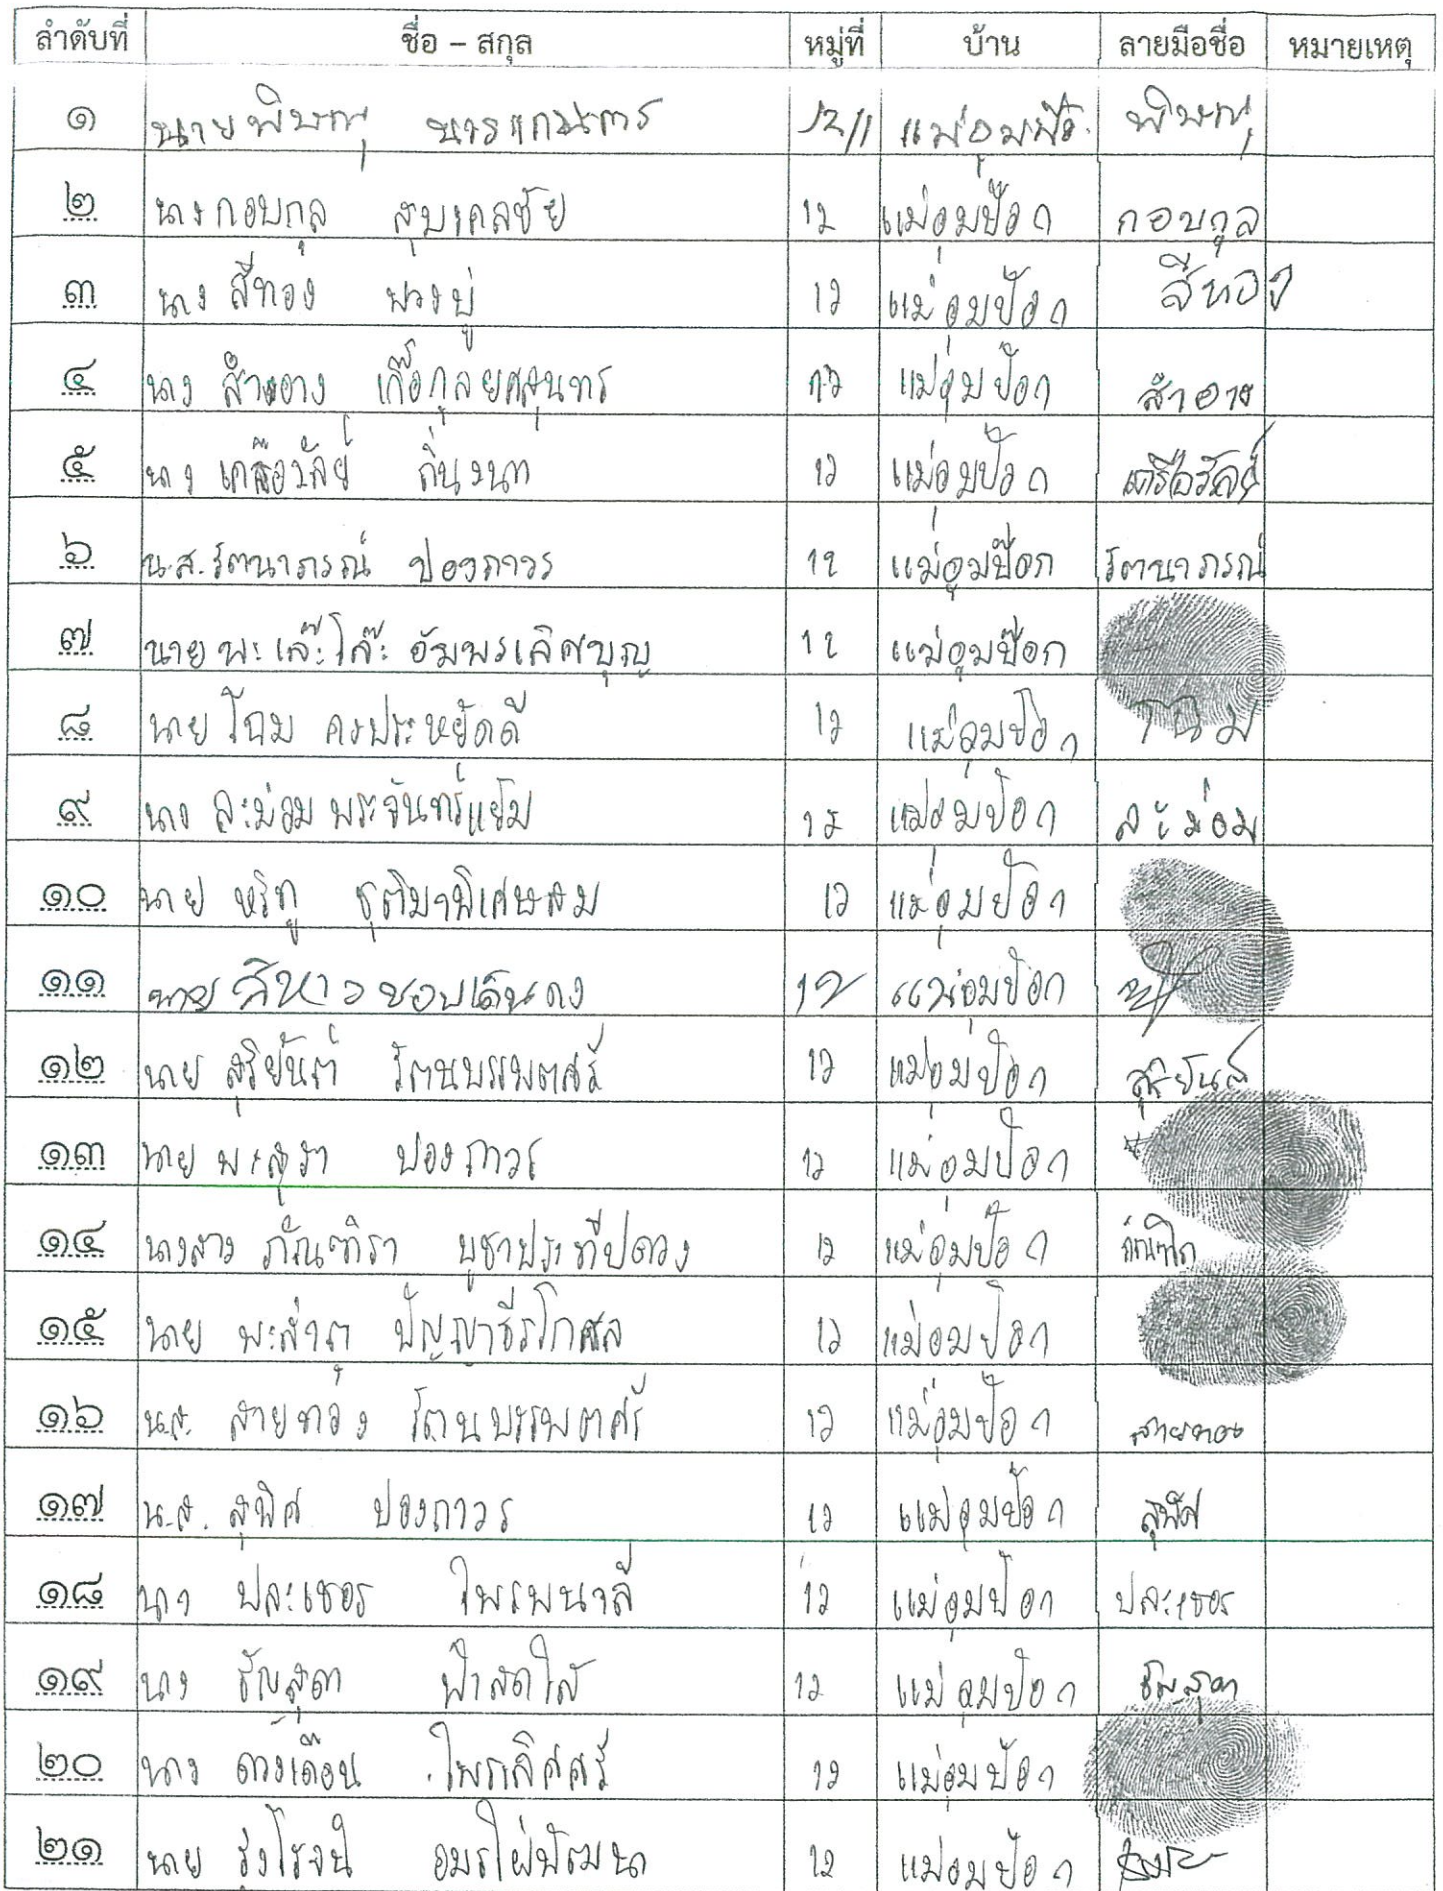 ลำดับที่ ชื่อ – สกุล หมู่ที่ บ้าน ลายมือชื่อ หมายเหตุ
๑ นายพิษณุ 12/1 พิษณุ
๒ นางกอบกุล 12 แม่อุมป๊อก กอบกุล
๓ นาง สีทอง พวงบู่ 12 แม่อุมป๊อก สีทอง
๔ นาง สำอาง 12 แม่อุมป๊อก สำอาง
๕ นาง เครือวัลย์ 12 แม่อุมป๊อก เครือวัลย์
๖ น.ส.รัตนาภรณ์ ปองถาวร 12 แม่อุมป๊อก รัตนาภรณ์
๗ นาย พะเล๊ะโล๊ะ อัมพรเลิศบุญ 12 แม่อุมป๊อก
๘ นาย โฉม คงประหยัดดี 12 แม่อุมป๊อก โฉม
๙ นาง ละม่อม พระจันทร์แย้ม 12 แม่อุมป๊อก ละม่อม
๑๐ นาย หริทู 12 แม่อุมป๊อก
๑๑ นาย สิหาว ชอบเดินดง 12 แม่อุมป๊อก
๑๒ นาย สุริยันต์ รัตนบรรพตศรี 12 แม่อุมป๊อก สุริยันต์
๑๓ นาย พะสุวา ปองถาวร 12 แม่อุมป๊อก
๑๔ นางสาว ภัณฑิรา บูชาประทีปดวง 12 แม่อุมป๊อก ภัณฑิรา
๑๕ นาย ปัญญาธีรโกศล 12 แม่อุมป๊อก
๑๖ น.ส. สายทอง รัตนบรรพตศรี 12 แม่อุมป๊อก สายทอง
๑๗ น.ส. สุพิศ ปองถาวร 12 แม่อุมป๊อก สุพิศ
๑๘ นาง ปละเชอร ไพรพนาลี 12 แม่อุมป๊อก ปละเชอร
๑๙ นาง ธัญสุดา ฟ้าสดใส 12 แม่อุมป๊อก ธัญสุดา
๒๐ นาง ดวงเดือน ไพรเลิศศรี 12 แม่อุมป๊อก
๒๑ นาย รุ่งโรจน์ อมรไผ่พัฒนา 12 แม่อุมป๊อก